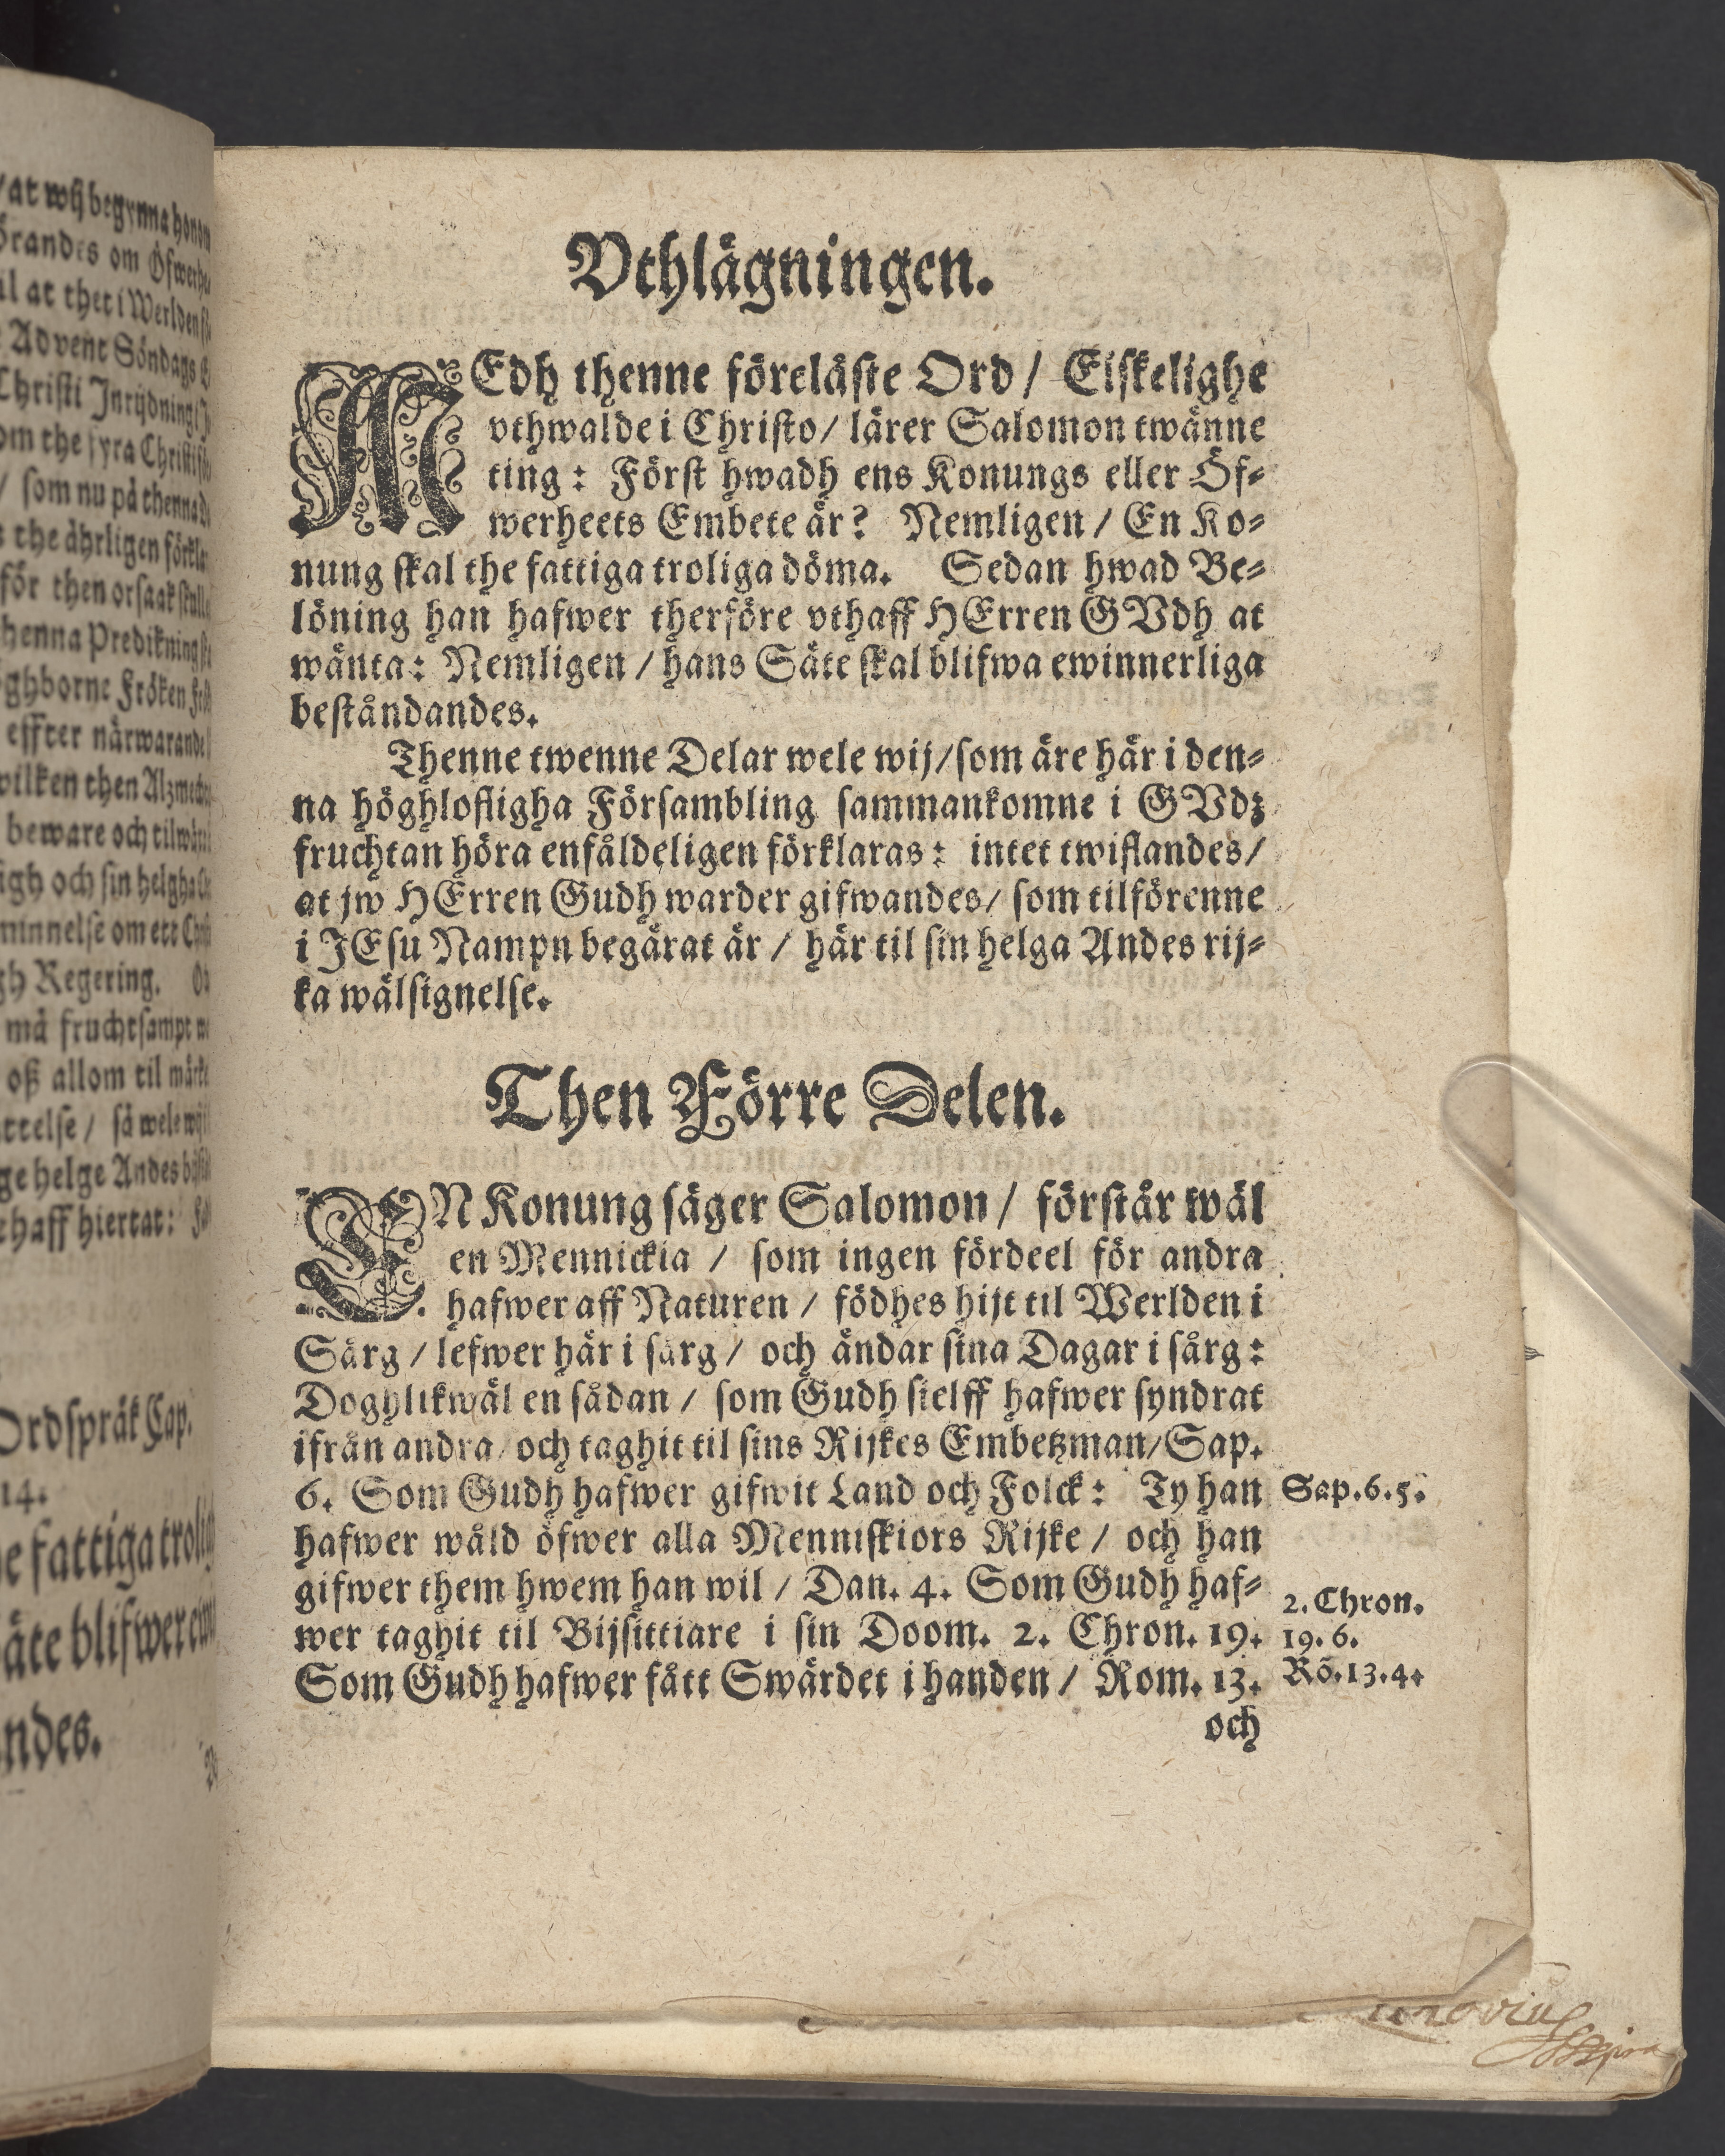 /at wij begynna honom
örandes om Öfwerhe
al at thet i Werlden
Advent Söndags
Christi Inrijdning/
om the fyra Christi
/ som nu på thenna
s the ährligen förkla
för then orsaak skull
henna Predikning
öghborne Fröken
effter närwarande
wilken then Alzmech
beware och til
igh och sin helgha
minnelse om ett
gh Regering.
må fruchtsampt
oß allom til märke
ttelse / så wele wij
ge helge Andes
ehaff hiertat:
Ordspråk Cap.
14.
he fattiga trolig
äte blifwer
ndes.
Vthlägningen.
MEdh thenne föreläste Ord / Elskelighe
vthwalde i Christo / lärer Salomon twänne
ting: Först hwadh ens Konungs eller Öf-
werheets Embete är? Nemligen / En Ko-
nung skal the fattiga troliga döma. Sedan hwad Be-
löning han hafwer therföre vthaff HErren GVdh at
wänta: Nemligen / hans Säte skal blifwa ewinnerliga
beståndandes.
Thenne twenne Delar wele wij / som äre här i den-
na höghlofligha Försambling sammankomne i GVdz
fruchtan höra enfåldeligen förklaras: intet twiflandes /
at jw HErren Gudh warder gifwandes / som tilförenne
i JEsu Nampn begärat är / här til sin helga Andes rij-
ka wälsignelse.
Then Förre Delen.
EN Konung säger Salomon / förstår wäl
en Mennickia / som ingen fördeel för andra
hafwer aff Naturen / födhes hijt til Werlden i
Sårg / lefwer här i sårg / och ändar sina Dagar i sårg:
Doghlikwäl en sådan / som Gudh sielff hafwer syndrat
ifrån andra / och taghit til sins Rijkes Embetzman / Sap.
6. Som Gudh hafwer gifwit Land och Folck: Ty han
hafwer wåld öfwer alla Menniskiors Rijke / och han
gifwer them hwem han wil / Dan. 4. Som Gudh haf-
wer taghit til Bijsittiare i sin Doom. 2. Chron. 19.
Som Gudh hafwer fått Swärdet i handen / Rom. 13.
och
Sap. 6. 5.
2. Chron.
19. 6.
Rō. 13. 4.